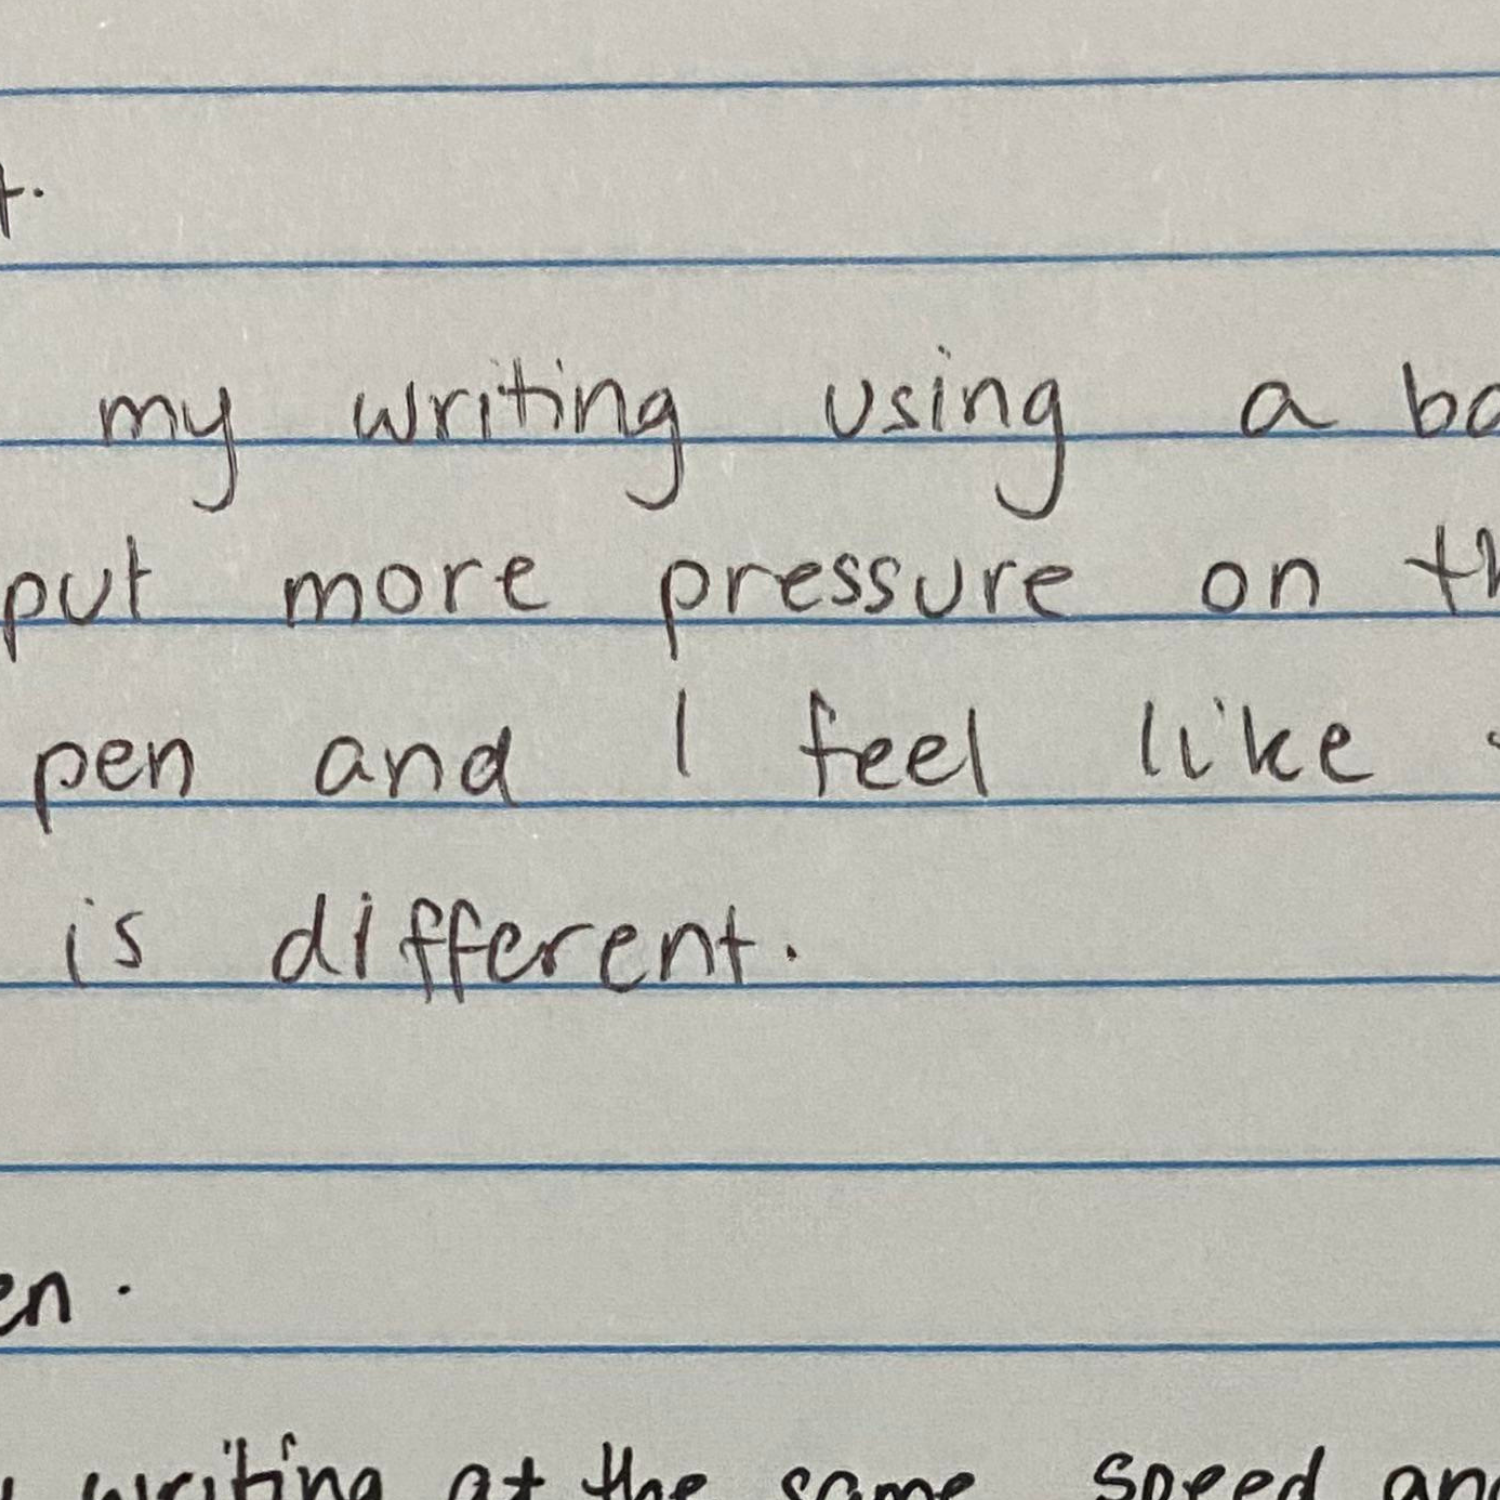 my writing using a
put more pressure on
pen and I feel like
is different.
writing at the same speed